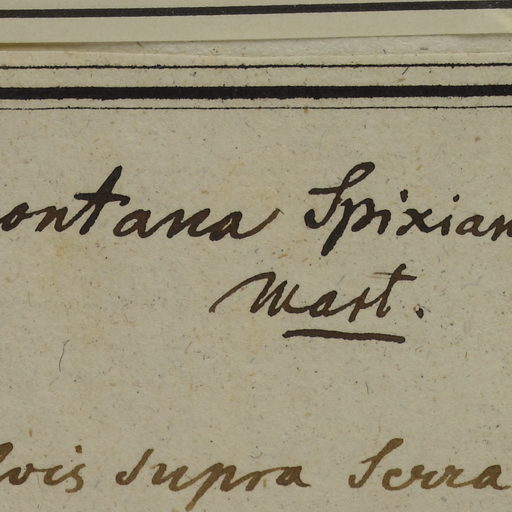 ontana Spixian
Mart.
vis supra Serra